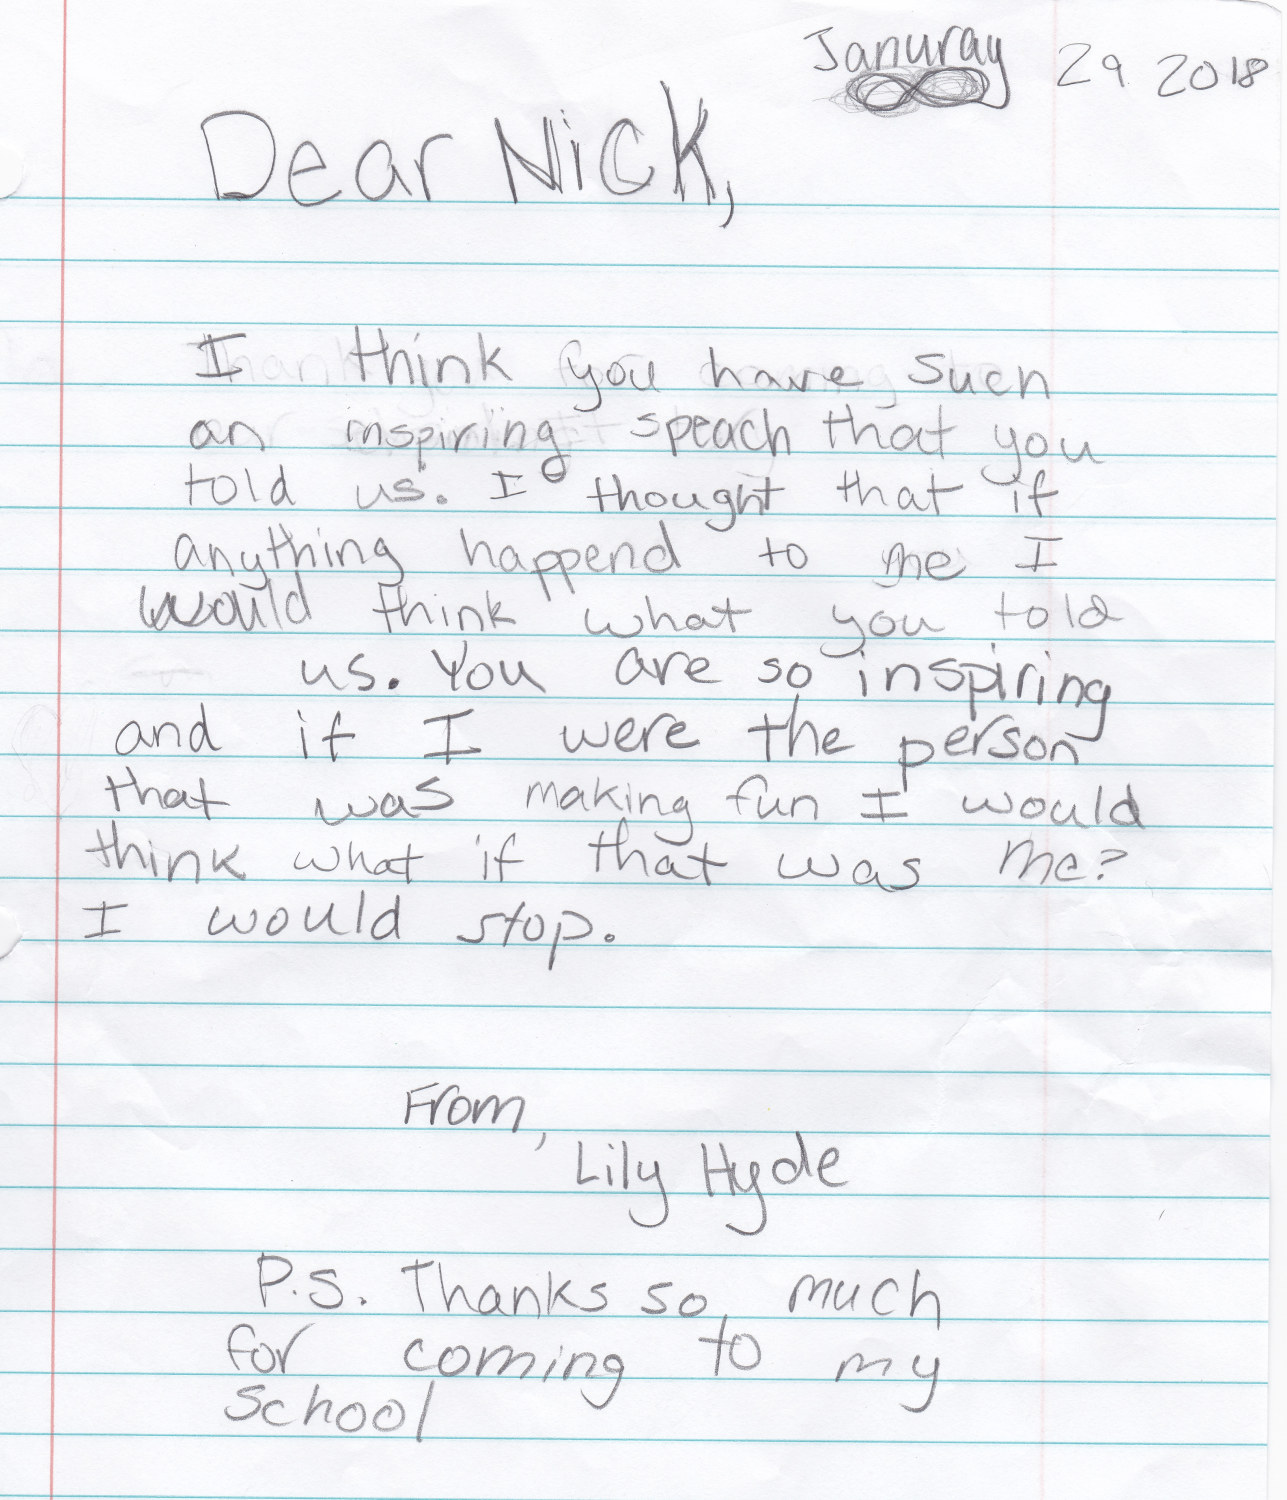 Januray 29 2018
Dear Nick,
I think you have such
an inspiring speach that you
told us. I thought that if
anything happend to me I
would think what you told
us. You are so inspiring
and if I were the person
that was making fun I would
think what if that was me?
I would stop.
From,
Lily Hyde
P.S. Thanks so much
for coming to my
school